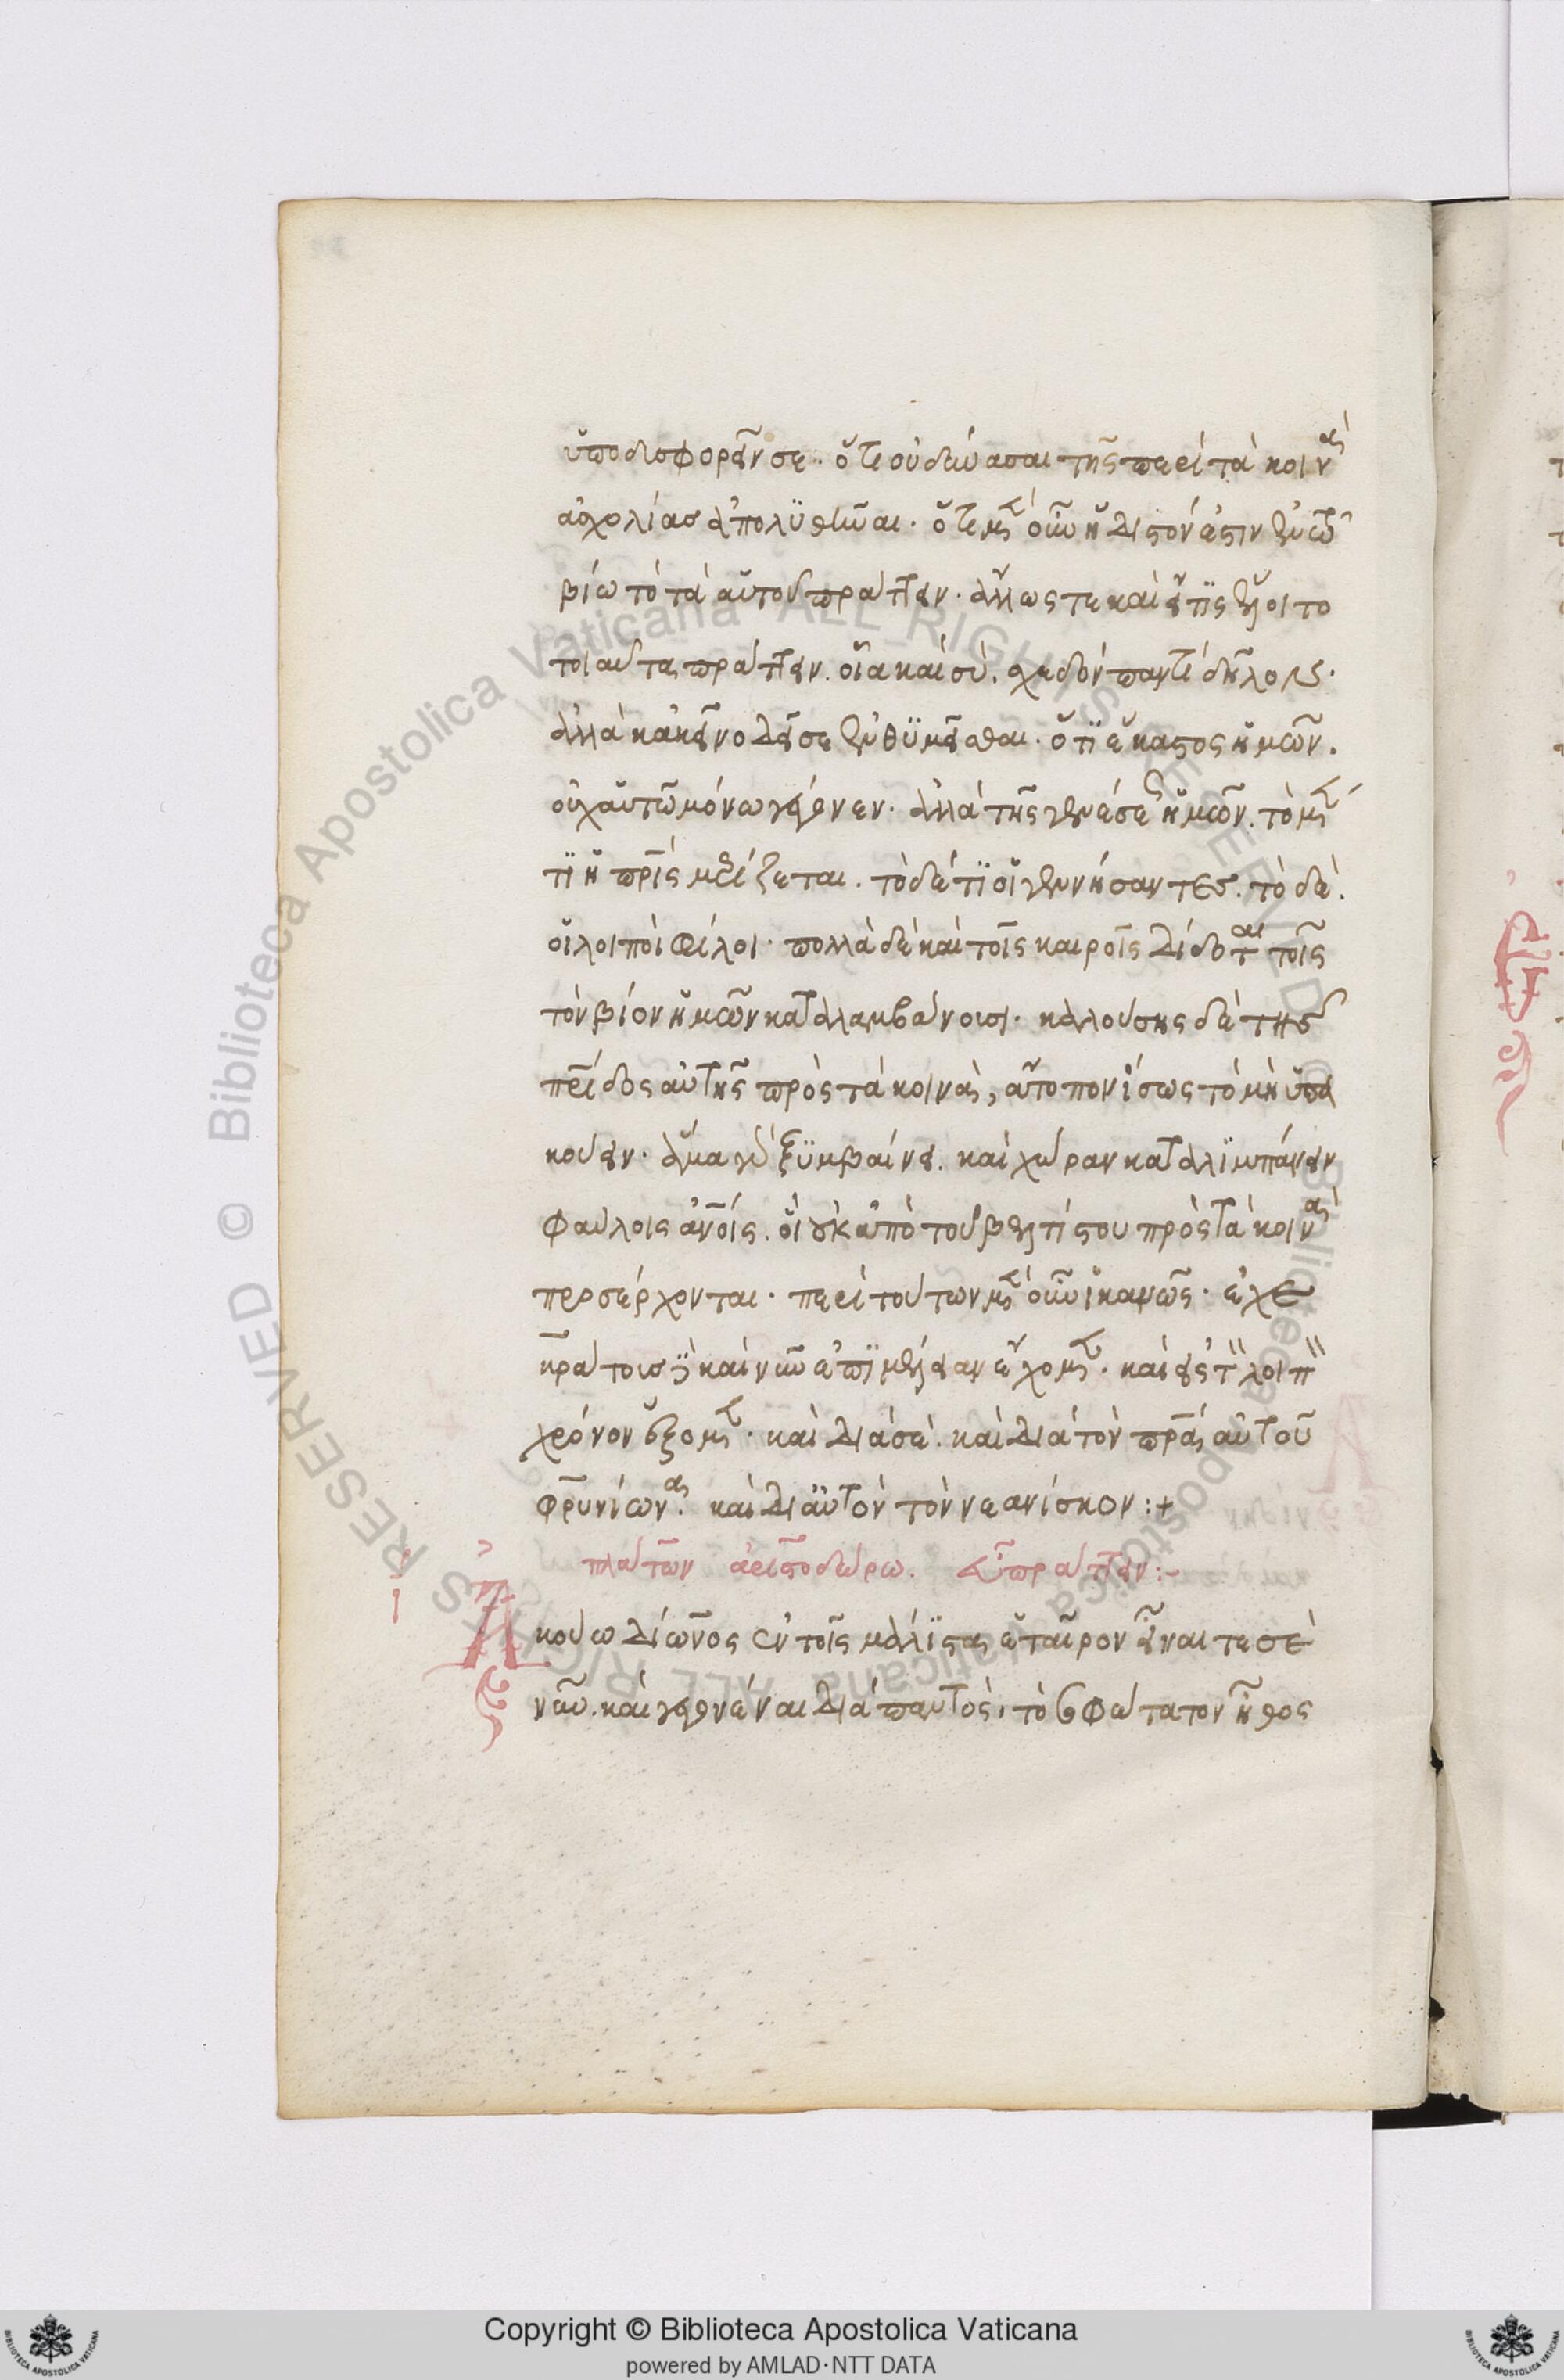 ὑποδυσφορεῖν σε. ὅτι οὐ δύνασαι τῆς περὶ τὰ κοινὰ
ἀσχολίας ἀπολυθῆναι. ὅτι μὲν οὖν ἥδιστόν ἐστιν ἐν τῶ
βίω τὸ τὰ αὑτοῦ πράττειν. ἄλλως τε καὶ εἴ τις ἕλοιτο
τοιαῦτα πράττειν. οἷα καὶ σύ. σχεδὸν παντὶ δῆλον.
ἀλλὰ κἀκεῖνο δεῖ σε ἐνθυμεῖσθαι. ὅτι ἕκαστος ἡμῶν.
οὐχ αὑτῶ μόνω γέγονεν. ἀλλὰ τῆς γενέσεως ἡμῶν. τὸ μέν
τι ἡ πατρὶς μερίζεται. τὸ δέ τι οἱ γεννήσαντες. τὸ δὲ.
οἱ λοιποὶ φίλοι. πολλὰ δὲ καὶ τοῖς καιροῖς δίδοται τοῖς
τὸν βίον ἡμῶν καταλαμβάνουσι. καλούσης δὲ τῆς
πατρίδος αὐτῆς πρὸς τὰ κοινὰ, ἄτοπον ἴσως τὸ μὴ ὑπα
κούειν. ἅμα γὰρ ξυμβαίνει. καὶ χώραν καταλιμπάνειν
φαύλοις ἀνθρώποις. οἳ οὐκ ἀπὸ τοῦ βελτίστου πρὸς τὰ κοινὰ
προσέρχονται. περὶ τούτων μὲν οὖν ἱκανῶς. ἐχε
κράτους δὲ καὶ νῦν ἐπιμέλειαν ἔχομεν. καὶ εἰς τὸν λοιπὸν
χρόνον ἕξομεν. καὶ διὰ σὲ. καὶ διὰ τὸν πατέρα αὐτοῦ
φρυνίωνα. καὶ δι' αὐτὸν τὸν νεανίσκον :+
πλάτων ἀριστοδώρω. εὖ πράττειν :~
Ἀκούω δίωνος ἐν τοῖς μάλιστα ἑταῖρον εἶναί τε σὲ
νῦν. καὶ γεγονέναι διὰ παντὸς, τὸ σοφώτατον ἦθος
Copyright © Biblioteca Apostolica Vaticana
powered by AMLAD·NTT DATA
© Biblioteca Apostolica Vaticana ALL RIGHTS RESERVED
© Biblioteca Apostolica Vaticana ALL RIGHTS RESERVED